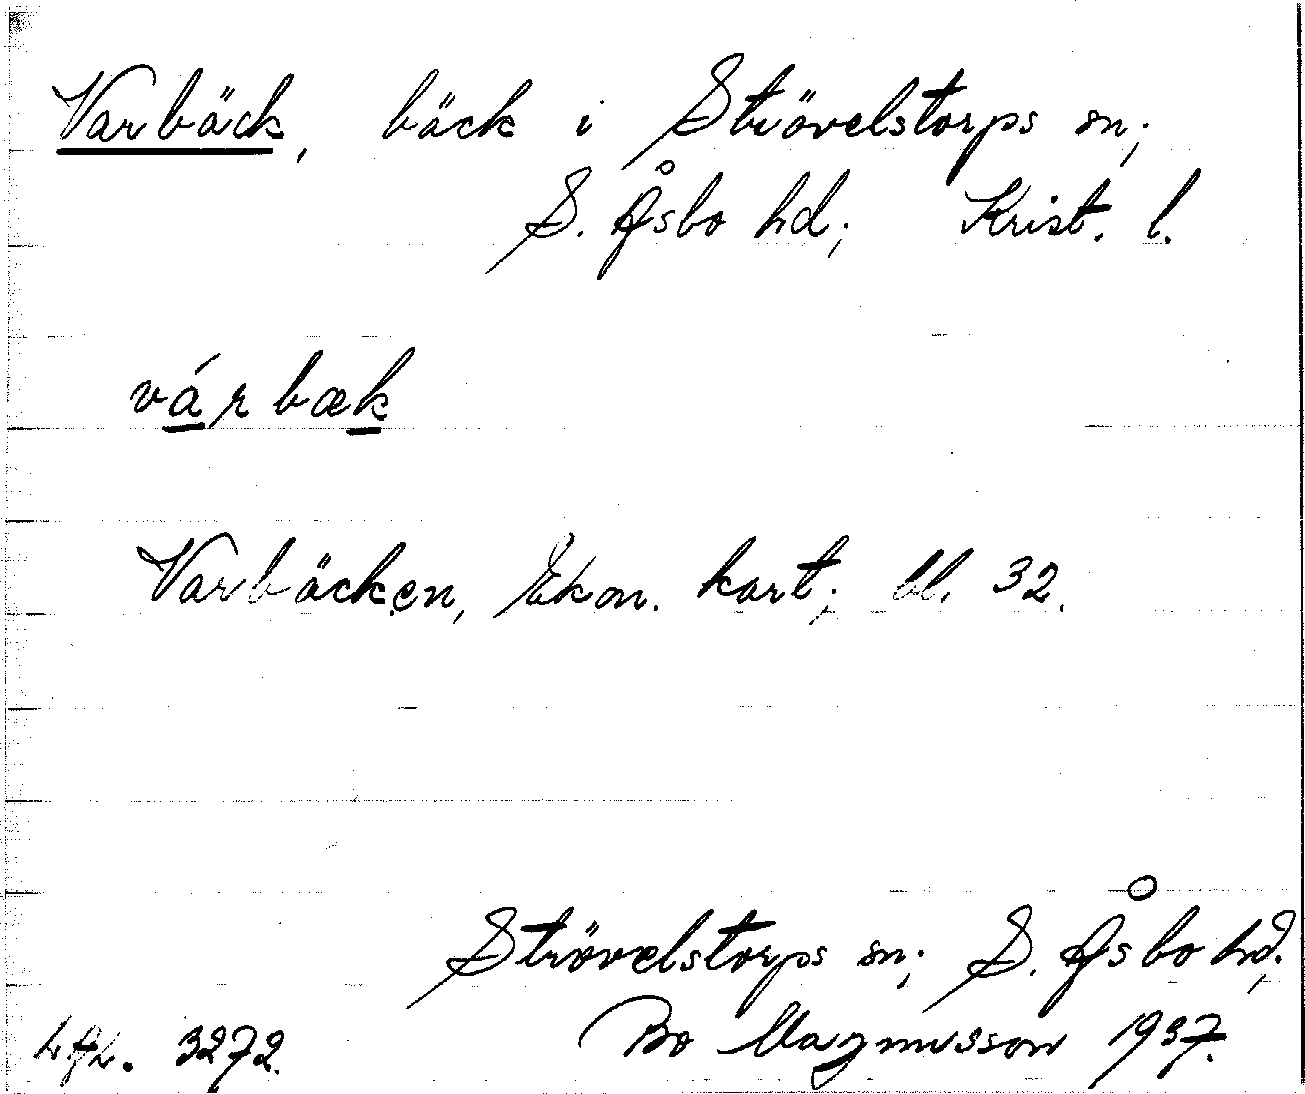 Varbäck, bäck i Strövelstorps sn;
S. Åsbo hd; Krist. l.
várbæk
Varbäcken, Ekon. kart; bl. 32.
Strövelstorps sn; S. Åsbo hd;
3272. Bo Magnusson 1937.